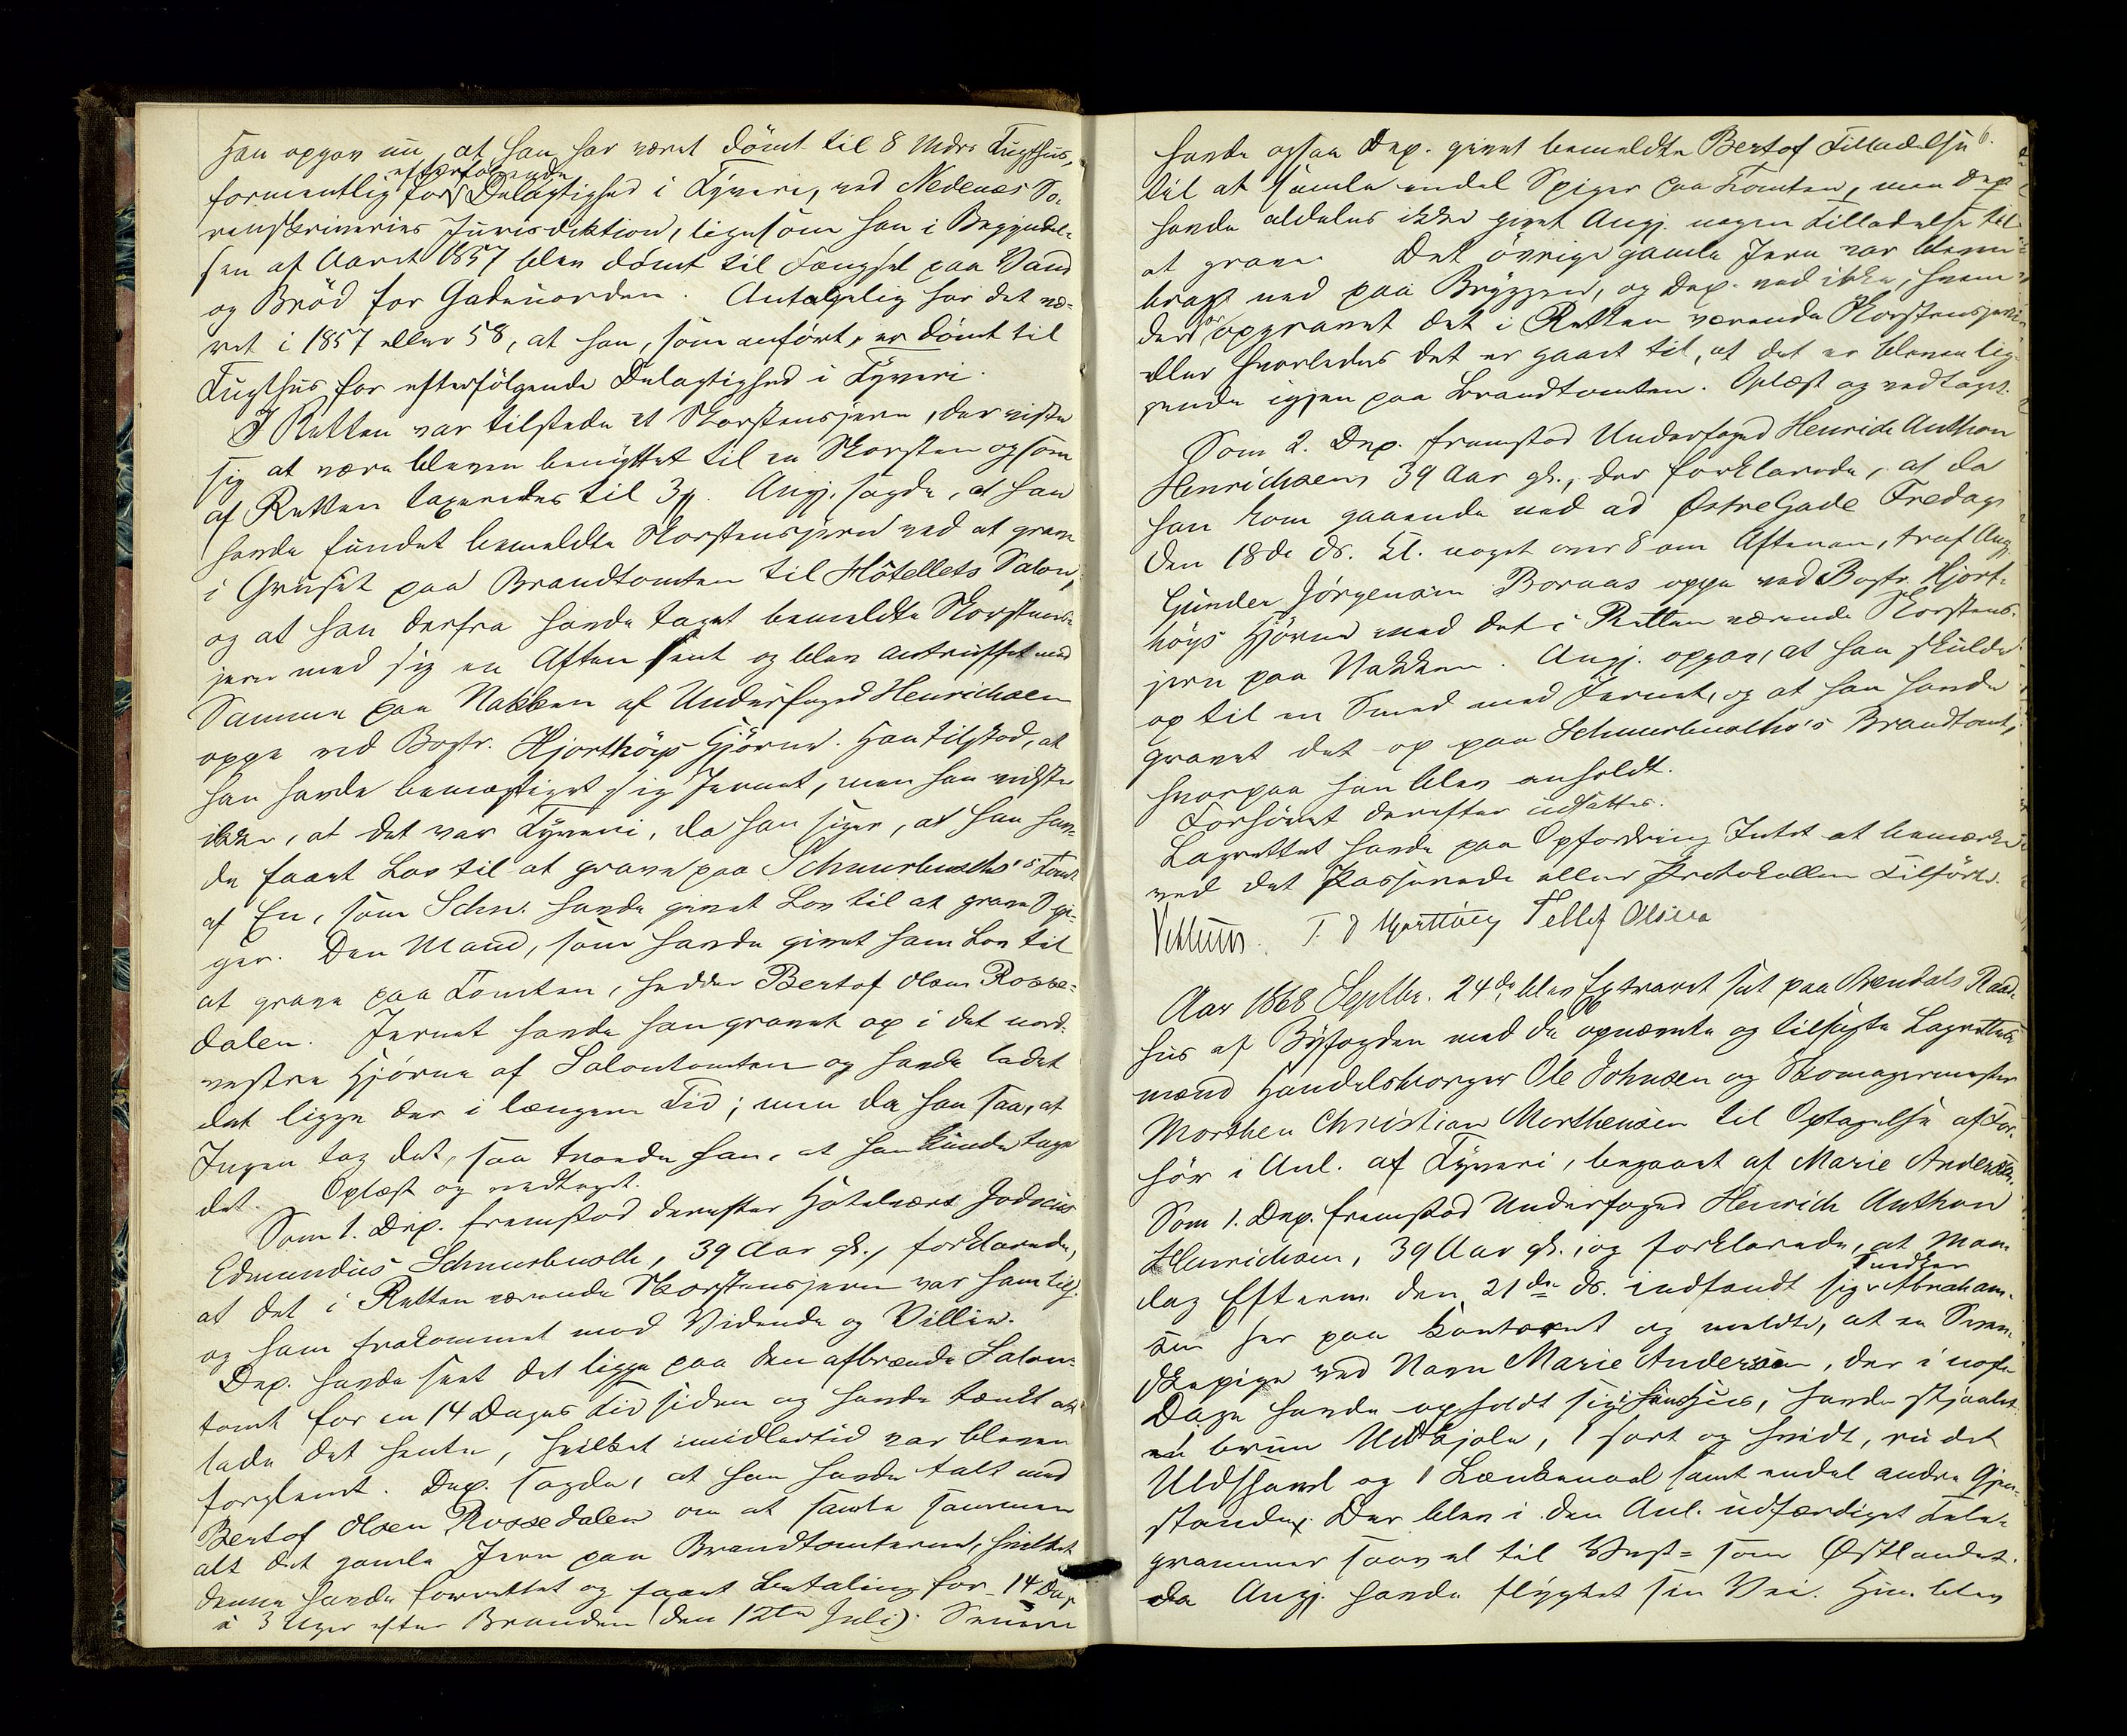 Han opgav nu, at han har været dømt til 8 Mdrs Tugthus,
formentlig for efterfølgende Delagtighed i Tyveri, ved Nedenæs So-
renskriveries Jurisdiktion, ligesom han i Begyndel-
sen af Aaret 1857 blev dømt til Fængsel paa Vand
og Brød for Gadeuorden. Antagelig har det væ-
ret i 1857 eller 58, at han, som anført, er dømt til
Tugthus for efterfølgende Delagtighed i Tyveri.
I Retten var tilstede et Skorstensjern, der viste
sig at være bleven benyttet til en Skorsten og som
af Retten taxeredes til 3 . Angj. sagde, at han
havde fundet bemeldte Skorstensjern ved at grave
i Gruset paa Brandtomten til Hôtellets Salon,
og at han derfra havde taget bemeldte Skorstens-
jern med sig en Aften sent og blev antruffet med
Samme paa Nakken af Underfoged Henrichsen
oppe ved Bagr. Hjorthøys Hjørne. Han tilstod, at
han havde bemægtiget sig Jernet, men han vidste
ikke, at det var Tyveri, da han siger, at han hav-
de faaet Lov til at grave paa Schnurbusch's Tomt
af En, som Schn. havde givet Lov til at grave Spi-
ger. Den Mand, som havde givet ham Lov til
at grave paa Tomten, hedder Bertof Olsen Rosse-
dalen. Jernet havde han gravet op i det nord-
vestre Hjørne af Salontomten og havde ladet
det ligge der i længere Tid; men da han saa, at
Ingen tog det, saa troede han, at han kunde tage
det. Oplæst og vedtaget.
Som 1. Dep. fremstod derefter Hotelvært Jodocus
Edmundus Schnurbusch, 39 Aar gl., forklarede,
at det i Retten værende Skorstensjern var ham tilh.
og ham frakommet mod Vidende og Villie.
Dep. havde seet det ligge paa den afbrændte Salon-
tomt for en 14 Dages Tid siden og havde tænkt at
lade det hente, hvilket imidlertid var bleven
forglemt. Dep. sagde, at han havde talt med
Bertof Olsen Rossedalen om at samle sammen
alt det gamle Jern paa Brandtomterne, hvilket
denne havde forrettet og faaet Betaling for 14 Dag.
à 3 Uger efter Branden (den 12te Juli). Senere
6.
havde ogsaa Dep. givet bemeldte Bertof Tilladelse
til at samle endel Spiger paa Tomten, men Dep.
havde aldeles ikke givet Angj. nogen Tilladelse til
at grave. Det øvrige gamle Jern var bleven
bragt ned paa Bryggen, og Dep. ved ikke, hvem
der har opgravet det i Retten værende Skorstensjern
eller hvorledes det er gaaet til, at det er bleven lig-
gende igjen paa Brandtomten. Oplæst og vedtaget.
Som 2. Dep. fremstod Underfoged Henrich Anthon
Henrichsen, 39 Aar gl., der forklarede, at da
han kom gaaende ned ad Østregade Fredag
den 18de ds. Kl. noget over 8 om Aftenen, traf Angj.
Gunder Jørgensen Boraas oppe ved Bagr. Hjort-
høys Hjørne med det i Retten værende Skorstens-
jern paa Nakken. Angj. opgav, at han skulde
op til en Smed med Jernet, og at han havde
gravet det op paa Schnurbusch's Brandtomt,
hvorpaa han blev anholdt.
Forhøret derefter udsattes.
Lagrettet havde paa Opfordring Intet at bemærke
ved det Passerede eller Protokollen Tilførte.
T. Tellef Olsen
Aar 1868 Septbr. 24de blev Extraret sat paa Arendals Raad-
hus af Byfogden med de opnævnte og tilsagte Lagrettes-
mænd Handelsborger Ole Johnsen og Skomagermester
Morthen Christian Morthensen til Optagelse af For-
hør i Anl. af Tyveri, begaaet af Marie Andersen.
Som 1. Dep. fremstod Underfoged Henrich Anthon
Henrichsen, 39 Aar gl., og forklarede, at Man-
dag Efterm. den 21de ds. indfandt sig Snedker Abraham-
sen her paa Kontoret og meldte, at en Sven-
skepige ved Navn Marie Andersen, der i nogle
Dage havde opholdt sig i hans Hus, havde stjaalet
en brun Uldkjole, 1 sort og hvidt, rudet
Uldshawl og 1 Lænkenaal samt endel andre Gjen-
stande. Der blev i den Anl. udfærdiget Tele-
grammer saavel til Vest- som Østlandet.
da Angj. havde flygtet sin Vei. Hun blev